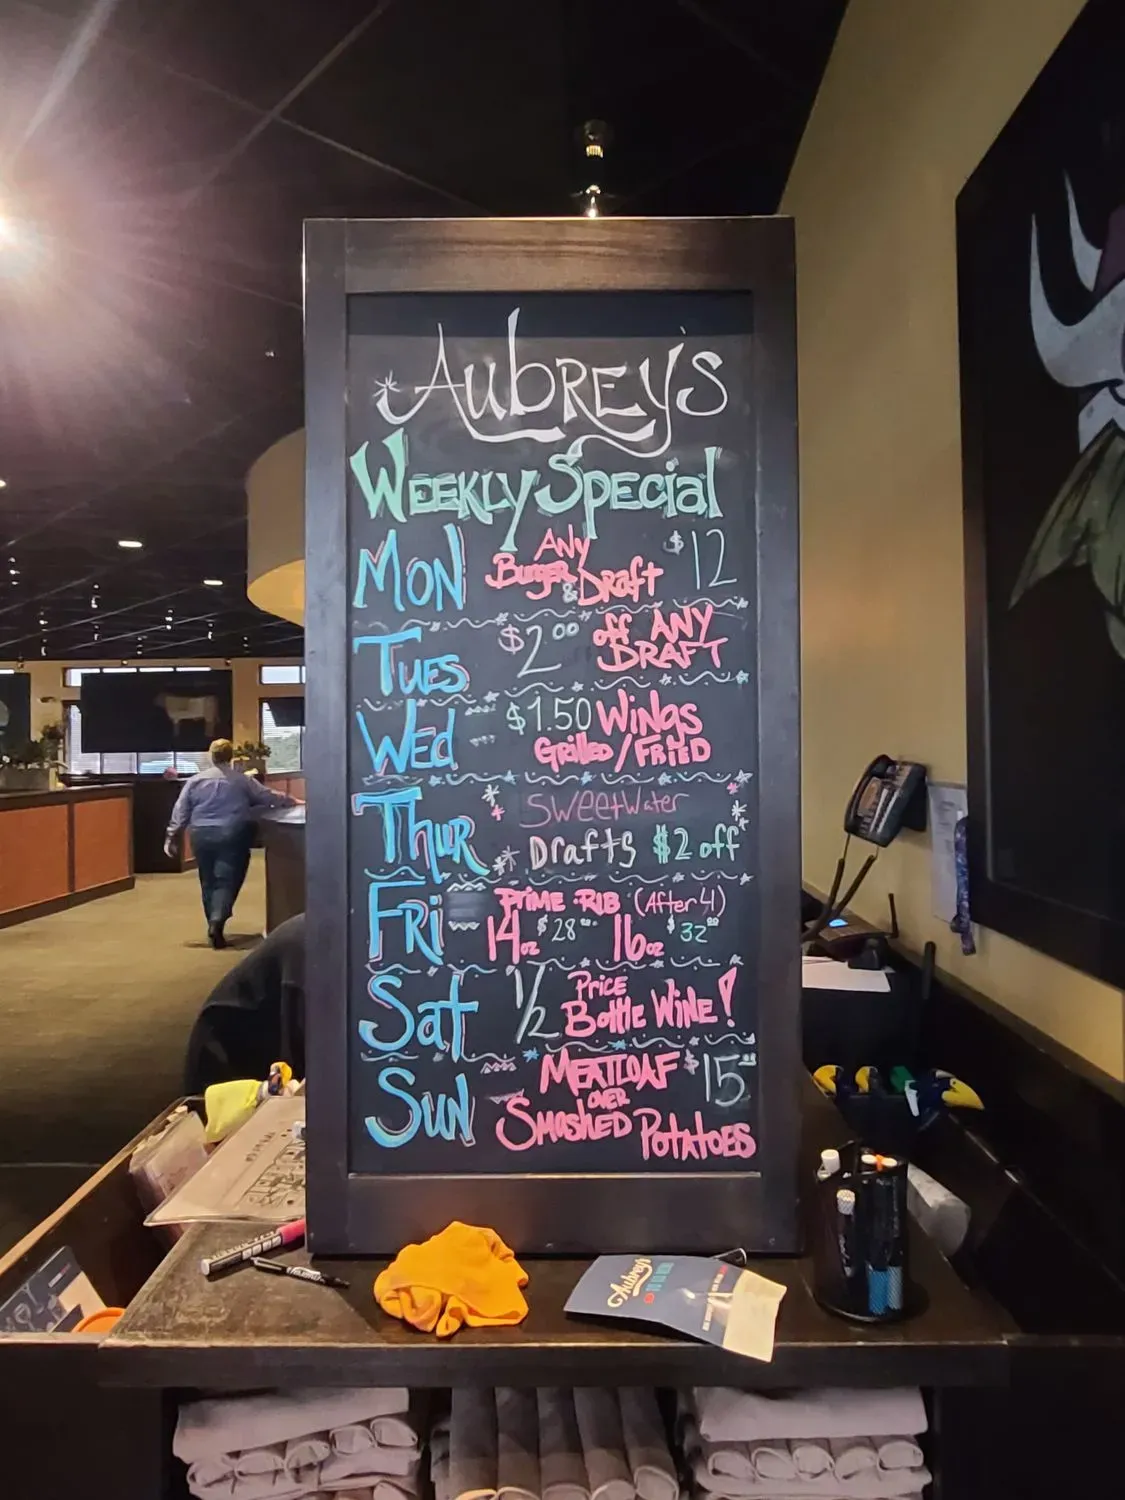 AUBREY'S
WEEKLY SPECIAL
MON ANY Burger & Draft $12
TUES $2.00 off ANY DRAFT
WED $1.50 WINGS
Grilled/FRIED
THUR SweetWater
Drafts $2 off
FRI PRIME RIB (After 4)
14oz $28 16oz $32
Sat 1/2 Price
Bottle WINE!
SUN MEATLOAF $15
OVER
SMASHED POTATOES
Aubrey's
TO GO